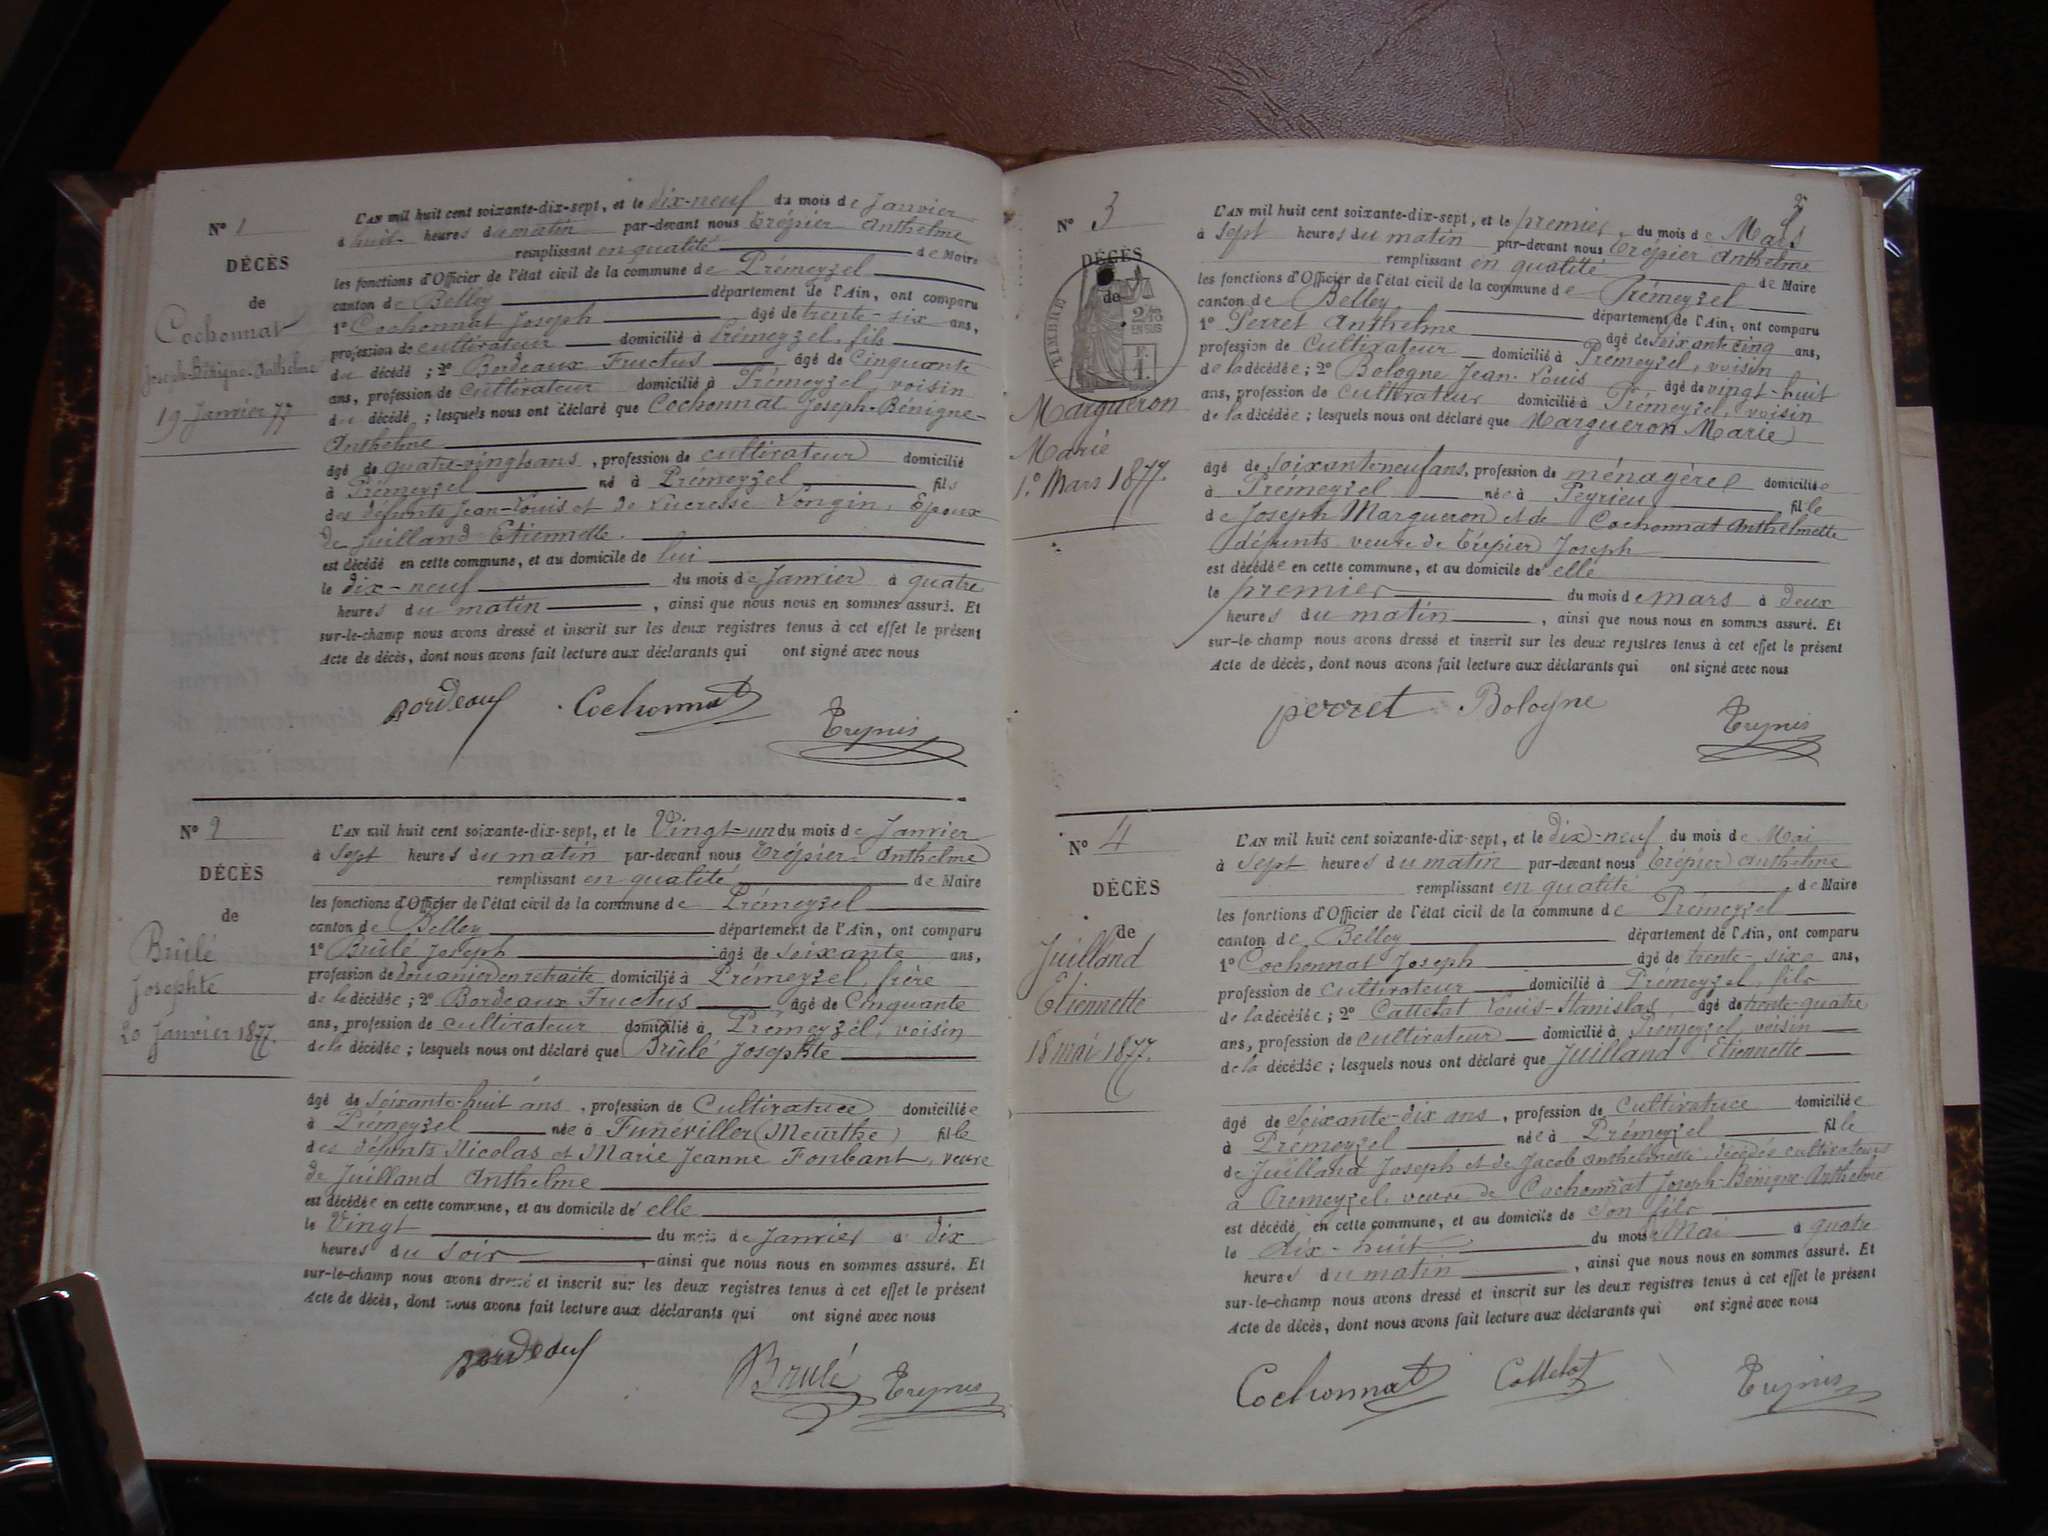 N° 1
DÉCÈS
de
Cochonnat
Joseph-Bénigne-Anthelme
19 Janvier 77
L'AN mil huit cent soixante-dix-sept, et le dix-neuf du mois de Janvier
à huit heures du matin par-devant nous Trépier Anthelme
remplissant en qualité de Maire
les fonctions d'Officier de l'état civil de la commune de Prémeyzel
canton de Belley département de l'Ain, ont comparu
1° Cochonnat Joseph âgé de trente-six ans,
profession de cultivateur domicilié à Prémeyzel, fils
du décédé ; 2° Bordeaux Fructus âgé de Cinquante
ans, profession de cultivateur domicilié à Prémeyzel, voisin
du décédé ; lesquels nous ont déclaré que Cochonnat Joseph-Bénigne-
Anthelme
âgé de quatre-vingts ans, profession de cultivateur domicilié
à Prémeyzel né à Prémeyzel fils
des défunts Jean-Louis et de Lucresse Longin, Epoux
de Juilland Etiennette.
est décédé en cette commune, et au domicile de lui
le dix-neuf du mois de Janvier à quatre
heures du matin, ainsi que nous nous en sommes assuré. Et
sur-le-champ nous avons dressé et inscrit sur les deux registres tenus à cet effet le présent
Acte de décès, dont nous avons fait lecture aux déclarants qui ont signé avec nous
Bordeaux Cochonnat
Trépier
N° 2
DÉCÈS
de
Brûlé
Josephte
20 Janvier 1877.
L'AN mil huit cent soixante-dix-sept, et le Vingt-un du mois de Janvier
à sept heures du matin par-devant nous Trépier Anthelme
remplissant en qualité de Maire
les fonctions d'Officier de l'état civil de la commune de Prémeyzel
canton de Belley département de l'Ain, ont comparu
1° Brûlé Joseph âgé de soixante ans,
profession de douanier en retraite domicilié à Prémeyzel, frère
de la décédée ; 2° Bordeaux Fructus âgé de Cinquante
ans, profession de cultivateur domicilié à Prémeyzel, voisin
de la décédée ; lesquels nous ont déclaré que Brûlé Josephte
âgé de soixante-huit ans, profession de Cultivatrice domiciliée
à Prémeyzel née à Funéviller (Meurthe) fille
des défunts Nicolas et Marie Jeanne Fonbant, veuve
de Juilland Anthelme
est décédée en cette commune, et au domicile de elle
le Vingt du mois de Janvier à dix
heures du soir, ainsi que nous nous en sommes assuré. Et
sur-le-champ nous avons dressé et inscrit sur les deux registres tenus à cet effet le présent
Acte de décès, dont nous avons fait lecture aux déclarants qui ont signé avec nous
Bordeaux
Brulé Trépier
2
N° 3
DÉCÈS
de
TIMBRE
2/10
EN SUS
F.
1.
Margueron
Marie
1er Mars 1877.
L'AN mil huit cent soixante-dix-sept, et le premier du mois de Mars
à sept heures du matin par-devant nous Trépier Anthelme
remplissant en qualité de Maire
les fonctions d'Officier de l'état civil de la commune de Prémeyzel
canton de Belley département de l'Ain, ont comparu
1° Perret Anthelme âgé de soixante cinq ans,
profession de Cultivateur domicilié à Prémeyzel, voisin
de la décédée ; 2° Bologne Jean-Louis âgé de vingt-huit
ans, profession de cultivateur domicilié à Prémeyzel, voisin
de la décédée ; lesquels nous ont déclaré que Margueron Marie
âgé de soixante neuf ans, profession de ménagère domiciliée
à Prémeyzel née à Peyrieu fille
de Joseph Margueron et de Cochonnat Anthelmette
défunts veuve de Trépier Joseph
est décédée en cette commune, et au domicile de elle
le premier du mois de mars à deux
heures du matin, ainsi que nous nous en sommes assuré. Et
sur-le-champ nous avons dressé et inscrit sur les deux registres tenus à cet effet le présent
Acte de décès, dont nous avons fait lecture aux déclarants qui ont signé avec nous
perret Bologne Trépier
N° 4
DÉCÈS
de
Juilland
Etiennette
18 mai 1877.
L'AN mil huit cent soixante-dix-sept, et le dix-neuf du mois de Mai
à sept heures du matin par-devant nous Trépier Anthelme
remplissant en qualité de Maire
les fonctions d'Officier de l'état civil de la commune de Prémeyzel
canton de Belley département de l'Ain, ont comparu
1° Cochonnat Joseph âgé de trente-sixe ans,
profession de cultivateur domicilié à Prémeyzel, fils
de la décédée ; 2° Cattelat Louis-Stanislas âgé de trente-quatre
ans, profession de cultivateur domicilié à Prémeyzel, voisin
de la décédée ; lesquels nous ont déclaré que Juilland Etiennette
âgé de soixante-dix ans, profession de cultivatrice domiciliée
à Prémeyzel née à Prémeyzel fille
de Juilland Joseph et de Jacob Anthelmette, décédés cultivateurs
à Prémeyzel, veuve de Cochonnat Joseph-Bénigne-Anthelme
est décédé en cette commune, et au domicile de son fils
le dix-huit du mois de Mai à quatre
heures du matin, ainsi que nous nous en sommes assuré. Et
sur-le-champ nous avons dressé et inscrit sur les deux registres tenus à cet effet le présent
Acte de décès, dont nous avons fait lecture aux déclarants qui ont signé avec nous
Cochonnat Cattelat Trépier